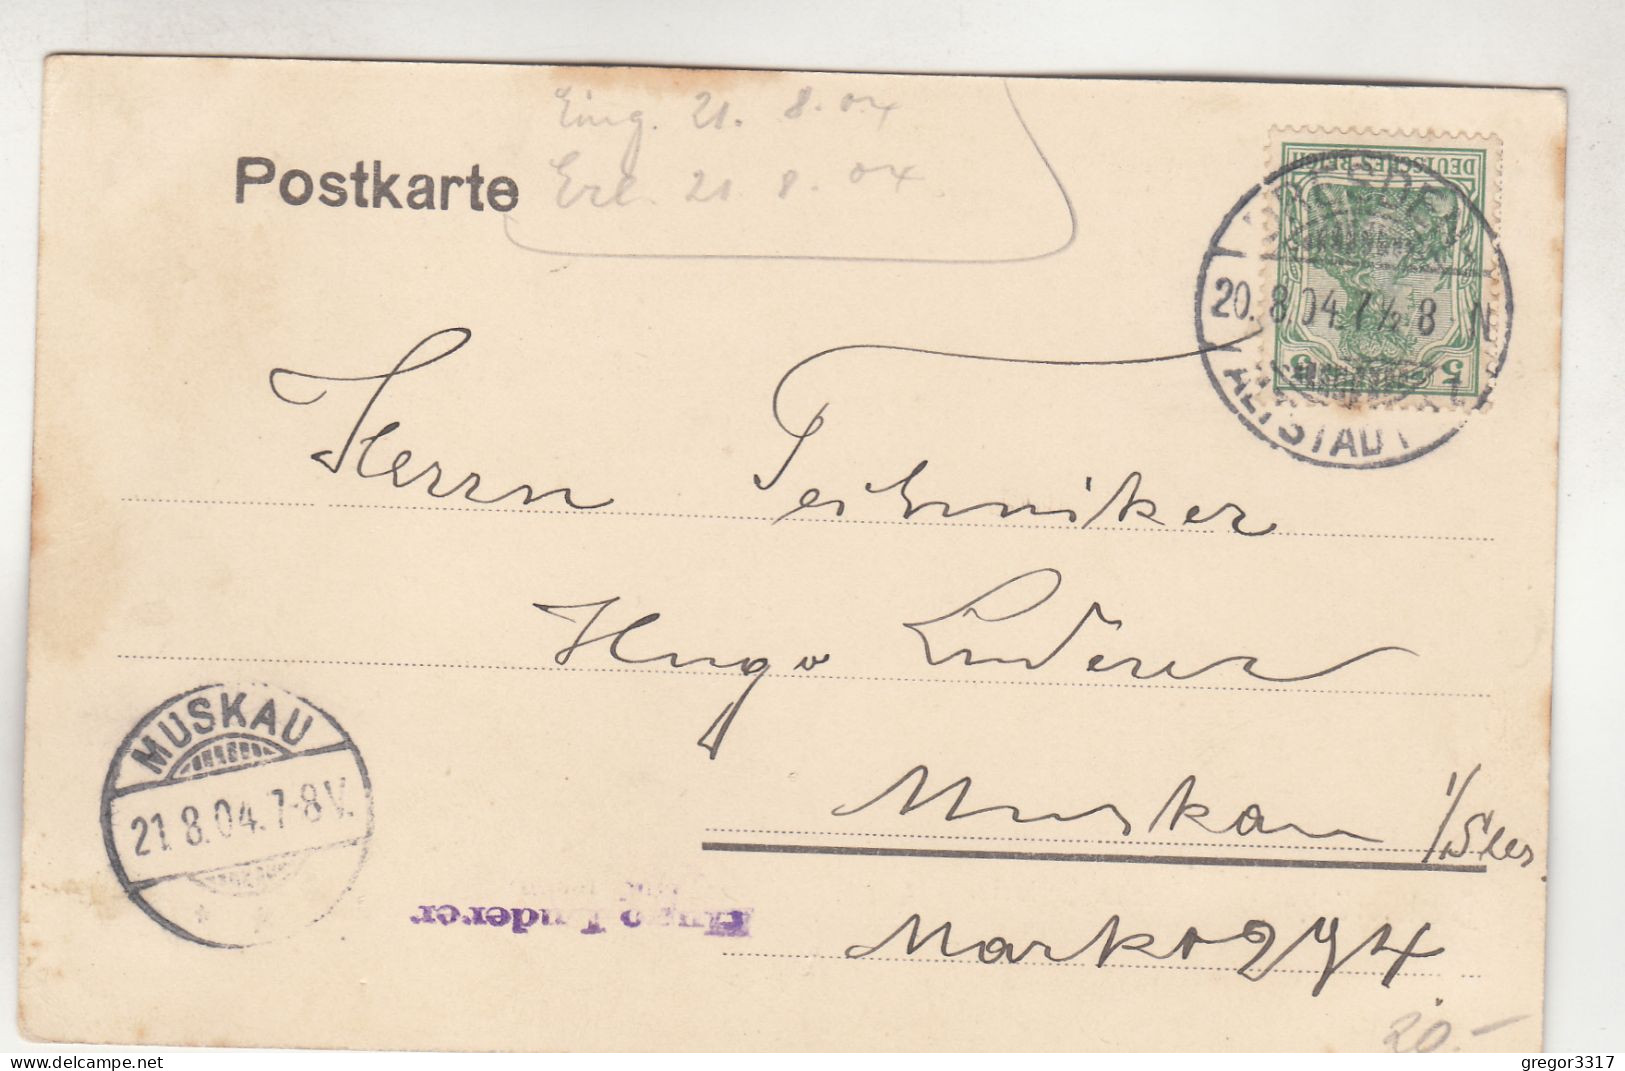 Eing. 21. 8. 04
Erl. 21 8. 04
Postkarte
DEUTSCHES REICH
5
DRESDEN
20.8.04.7½-8 N
ALTSTADT
Herrn Techniker
Hugo Luderer
Muskau i/Schles
Markt 274
MUSKAU
21.8.04.7-8V.
Hugo Luderer
20.-
gregor3317